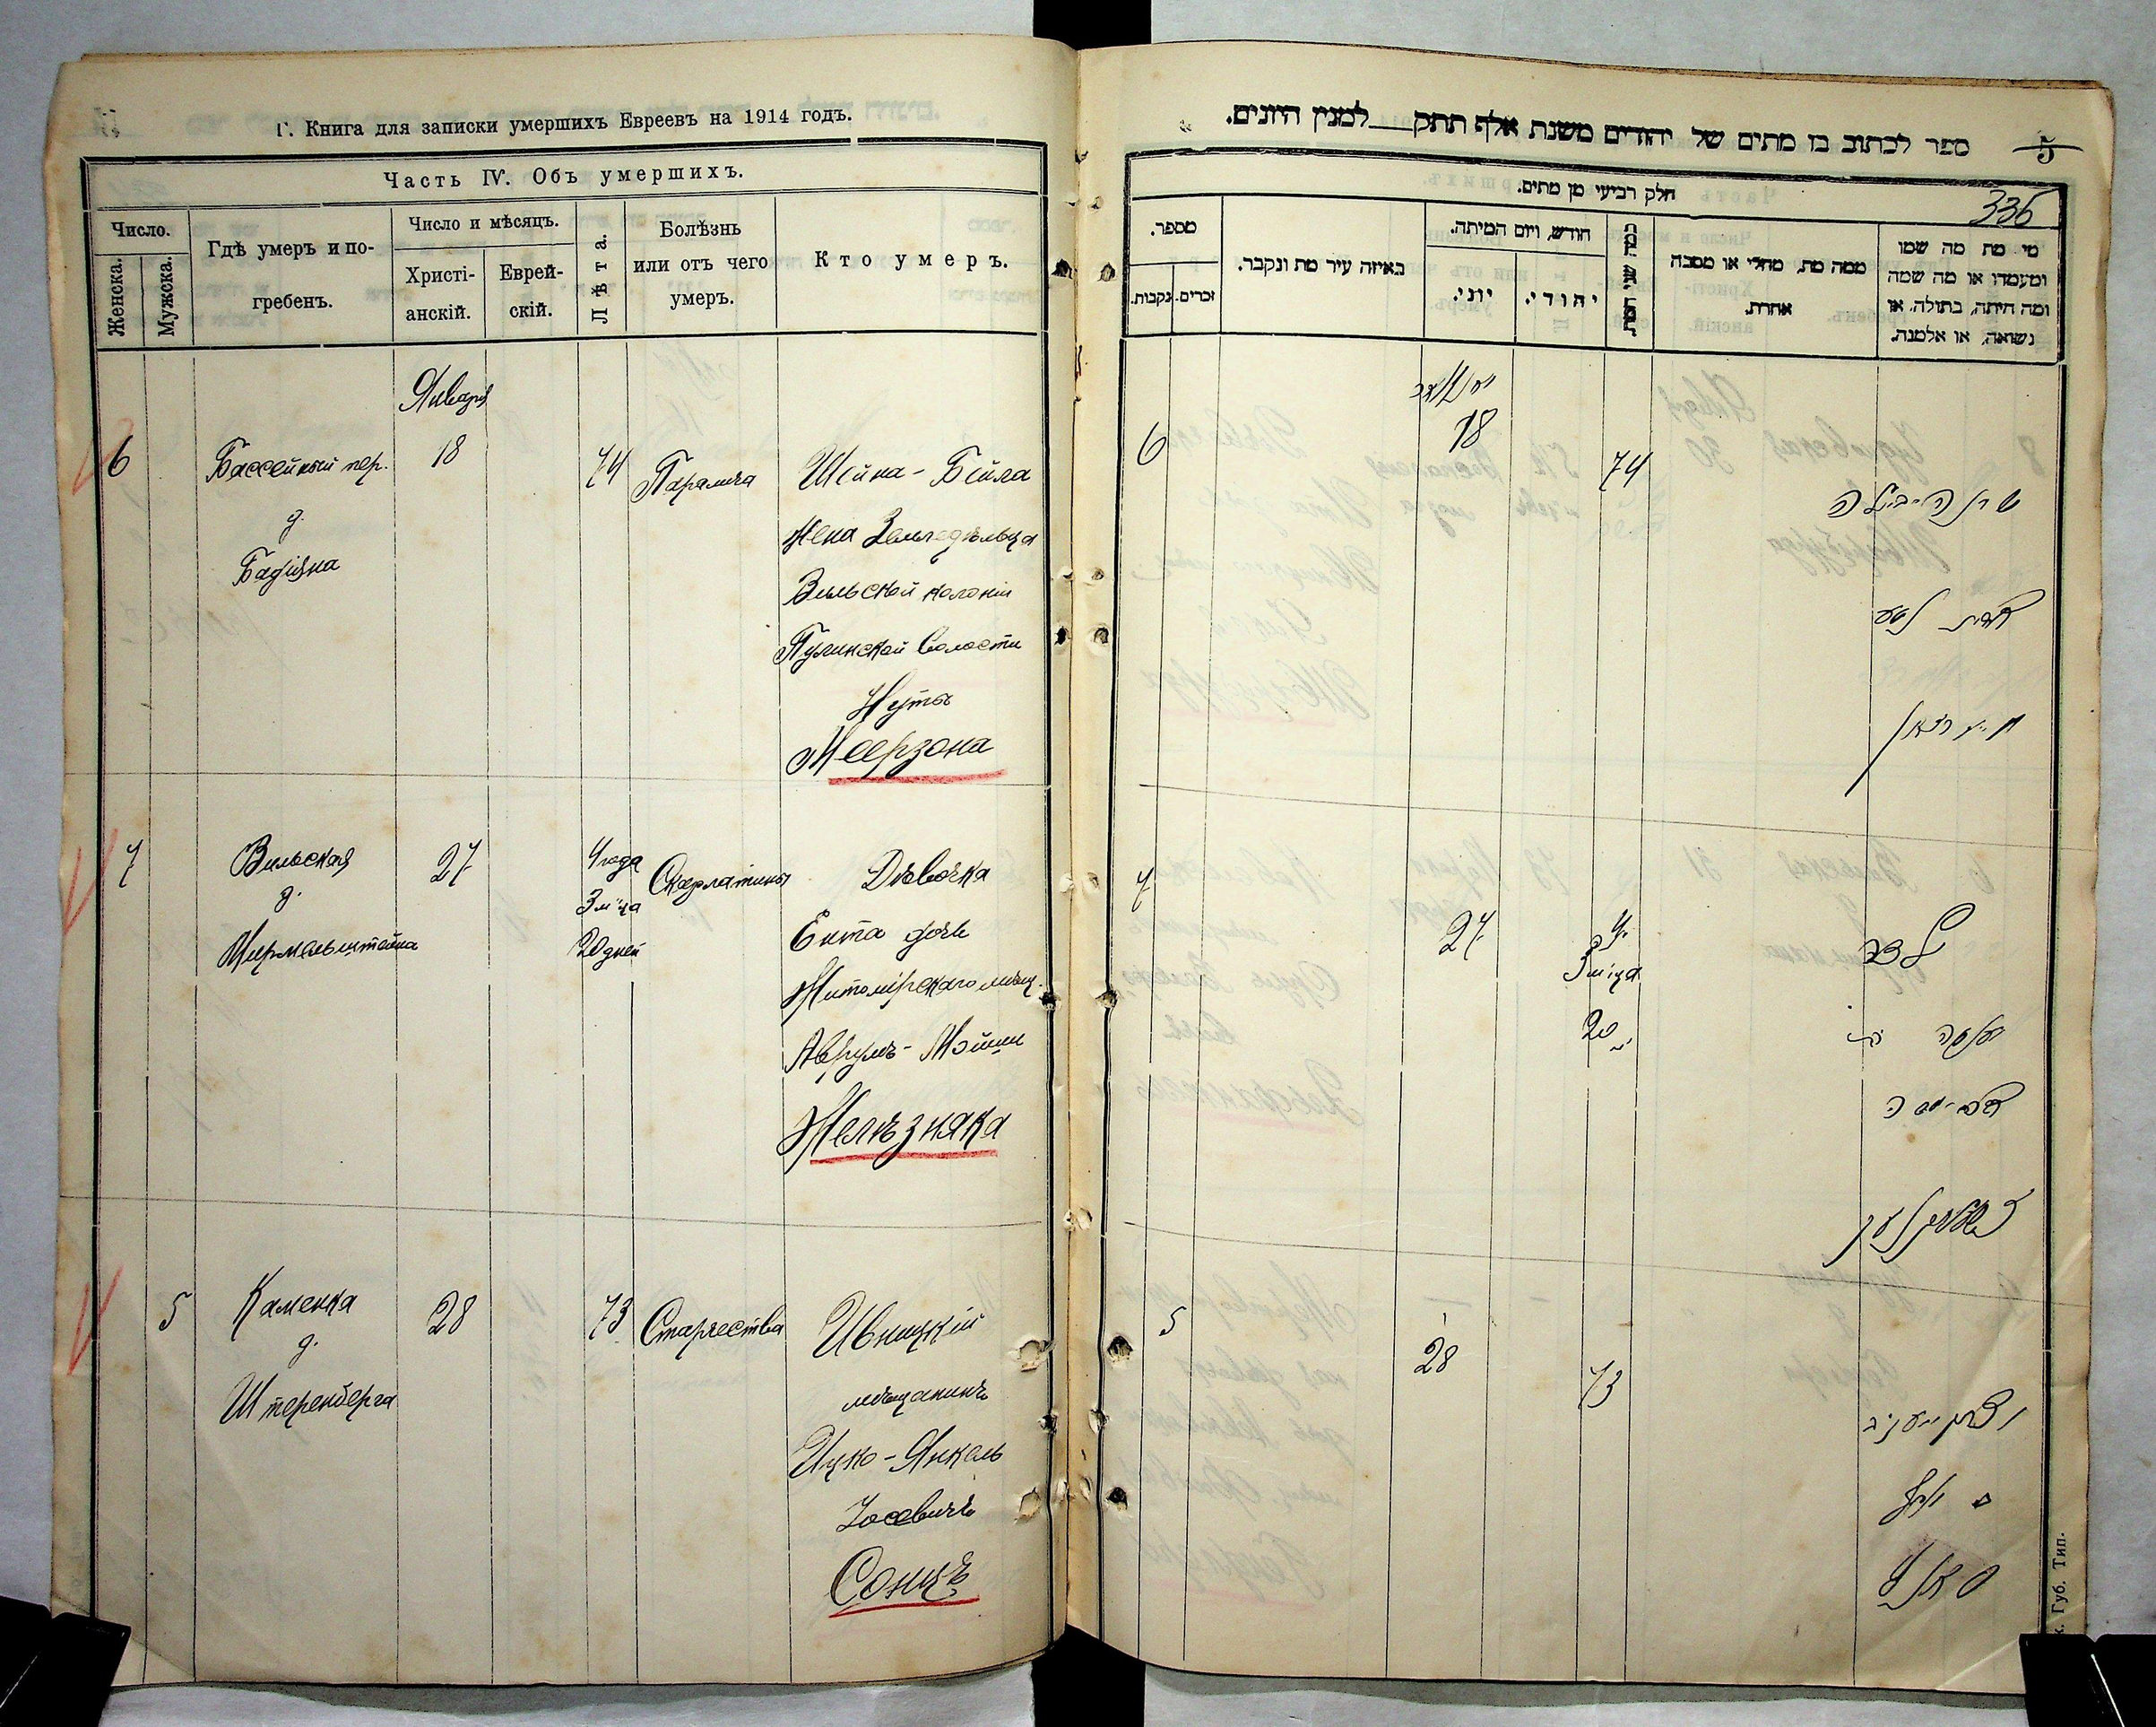 Г. Книга для записки умершихъ Евреевъ на 1914 годъ.
Часть IV. Объ умершихъ.
Число.
Женска.
Мужска.
Гдѣ умеръ и по-
гребенъ.
Число и мѣсяцъ.
Христі-
анскій.
Еврей-
скій.
Лѣта.
Болѣзнь
или отъ чего
умеръ.
Кто умеръ.
Января
6
Бассейный пер.
д.
18
74
Паралича
Шейна-Бейла
жена Земледѣльца
Вильской колоніи
Пулинской Волости
Нуты
Меерзона
7
Вильская
д.
27
4 года
3 м-ца
20 дней
Скарлатины
Дѣвочка
Ента дочь
Житомірскаго мѣщ.
Аврумъ-Мошки
Желѣзняка
5
Каменка
д.
Штеренберга
28
73
Старчества
Ивницкій
мѣщанинъ
Ицко-Янкель
Іосевичъ
Сонцъ
ספר לכתוב בו מתים של יהודים משנת אלף תתק למנין היונים.
5
336
חלק רביעי מן מתים.
מספר.
נקבות.
זכרים.
באיזה עיר מת ונקבר.
חודש, ויום המיתה.
יוני.
יהודי.
כמה שני המת.
ממה מת, מחלי או מסבה
אחרת.
מי מת מה שמו
ומעמדו או מה שמה
ומה היתה, בתולה, או
נשואה, או אלמנה.
יאנואר
6
18
74
שיינה-ביילה
7
27
4
3 м-ца
20
ילדה
יענטה בת
5
28
73
к. Губ. Тип.